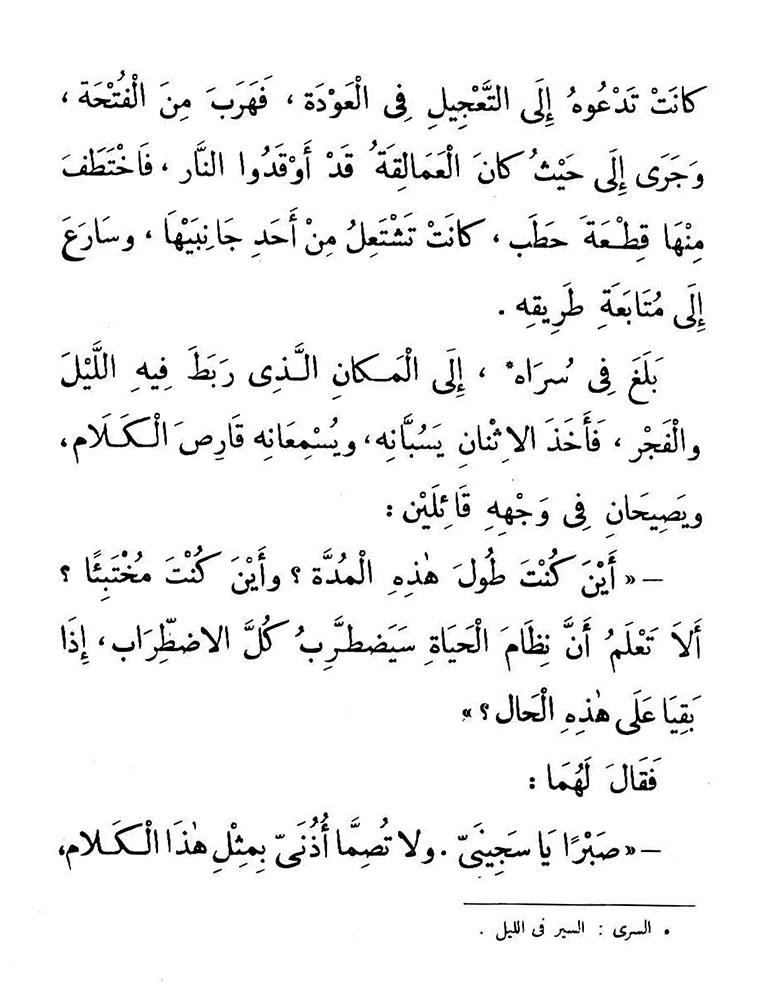 كانَتْ تَدْعُوهُ إِلَى التَّعْجِيلِ فِى الْعَوْدَة ، فَهَرَبَ مِنَ الْفُتْحَة ،
وَجَرَى إِلَى حَيْثُ كانَ الْعَمَالِقَةُ قَدْ أَوْقَدُوا النَّار ، فَاخْتَطَفَ
مِنْهَا قِطْعَةَ حَطَب ، كانَتْ تَشْتَعِلُ مِنْ أَحَدِ جَانِبَيْهَا ، وسَارَعَ
إِلَى مُتَابَعَةِ طَرِيقِه .
بَلَغَ فِى سُرَاه* ، إِلَى الْمَكانِ الَّذِى رَبَطَ فِيهِ اللَّيْلَ
والْفَجْر ، فَأَخَذَ الاِثْنانِ يَسُبَّانِه ، ويُسْمِعَانِه قَارِصَ الْكَلَام ،
ويَصِيحَانِ فِى وَجْهِهِ قَائِلَيْن :
— « أَيْنَ كُنْتَ طُولَ هٰذِهِ الْمُدَّة ؟ وأَيْنَ كُنْتَ مُخْتَبِئًا ؟
أَلَا تَعْلَمُ أَنَّ نِظَامَ الْحَيَاةِ سَيَضطَّرِبُ كُلَّ الاضطِّرَاب ، إِذَا
بَقِيَا عَلَى هٰذِهِ الْحَال ؟ »
فَقَالَ لَهُمَا :
— « صَبْرًا يَا سَجِينَىّ . ولا تُصِمَّا أُذُنَىّ بِمِثْلِ هٰذَا الْكَلَام ،
• السرى : السير فى الليل .